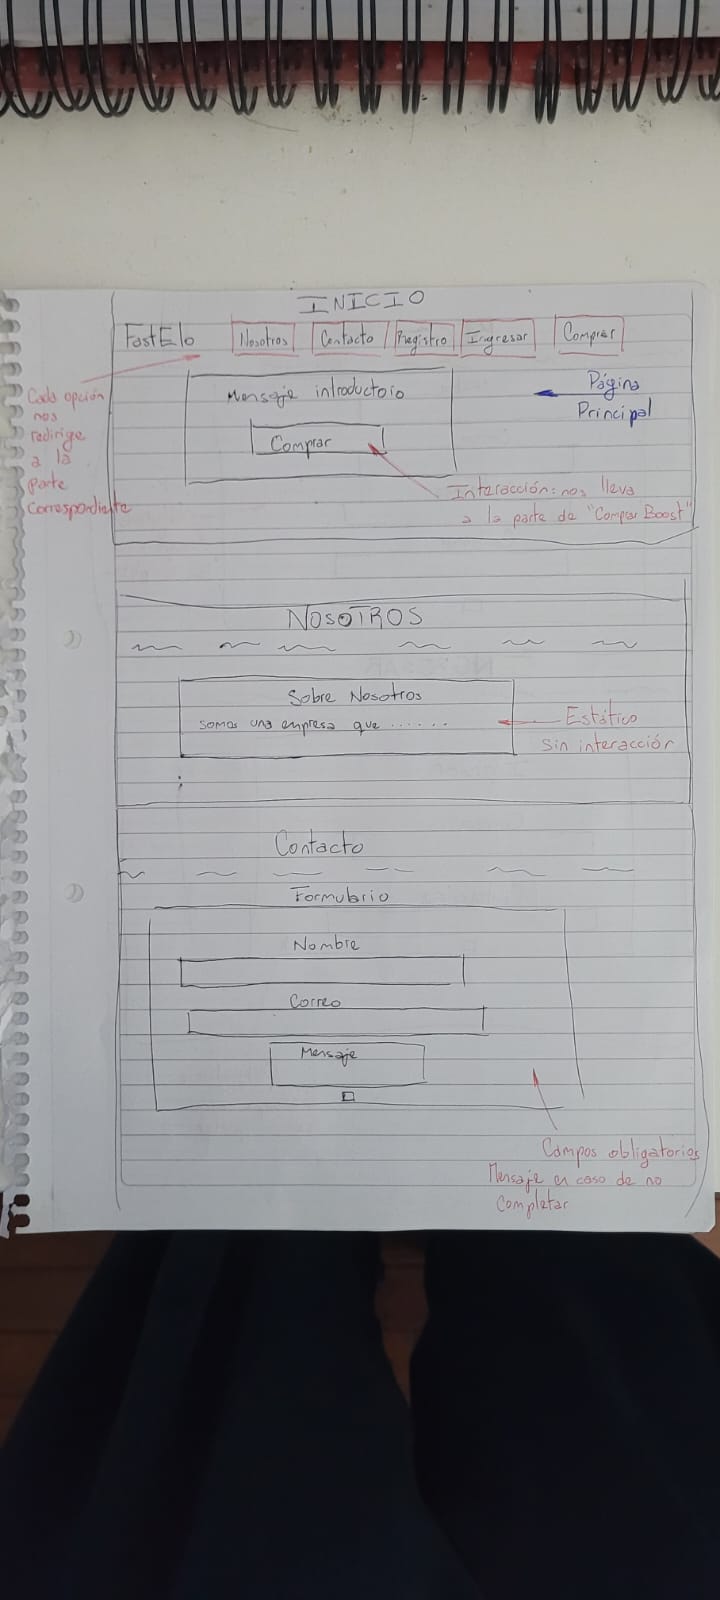 INICIO
FastElo Nosotros Contacto Registro Ingresar Comprar
Cada opción
nos
redirige
a la
parte
correspondiente
Mensaje introductorio
Comprar
Página
Principal
Interacción: nos lleva
a la parte de "Comprar Boost"
NOSOTROS
Sobre Nosotros
Somos una empresa que .......
Estático
Sin interacción
;
Contacto
Formulario
Nombre
Correo
Mensaje
Campos obligatorios
Mensaje en caso de no
completar